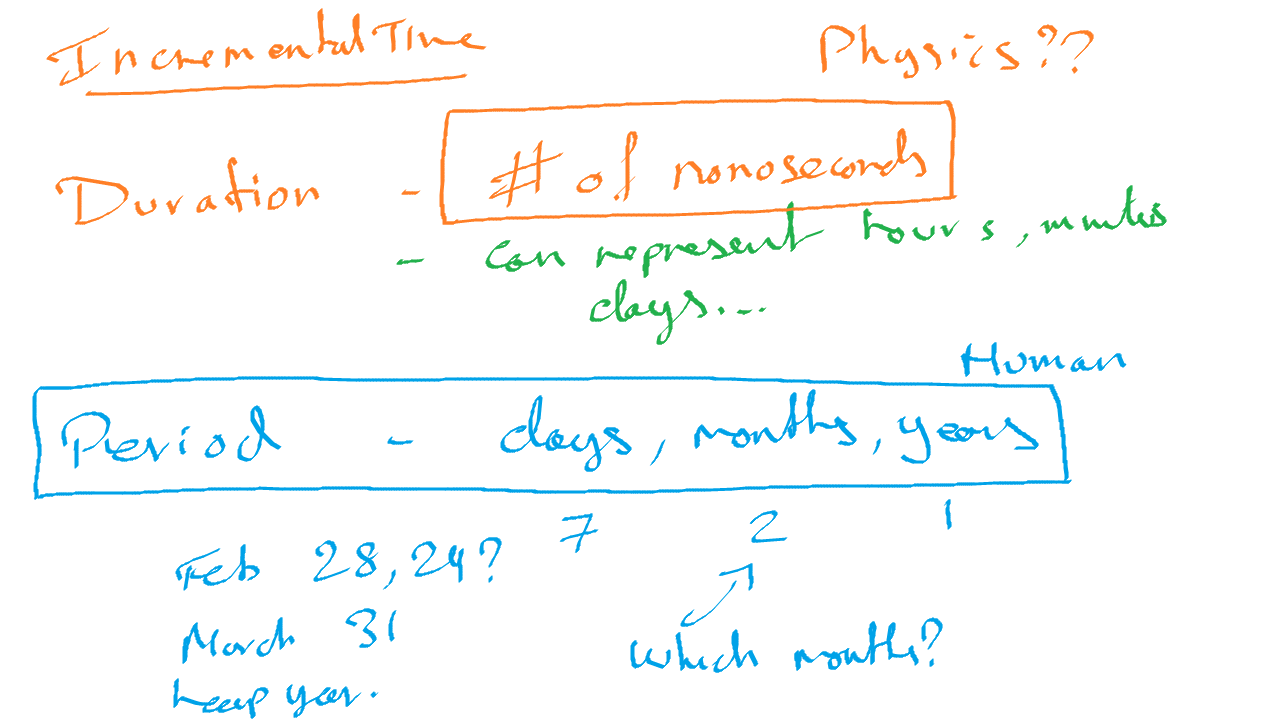 Incremental Time
Physics??
Duration - # of nonoseconds
- can represent hours, minutes
days...
Human
Period - days, months, years
7 2 1
Feb 28, 24?
March 31
Leap year.
Which months?